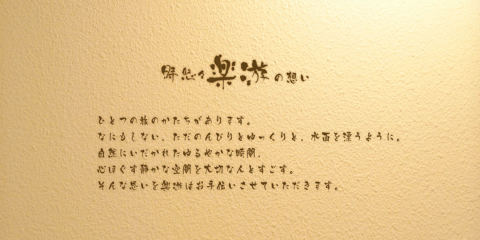 時悠々楽游の想い
ひとつの旅のかたちがあります。
なにもしない、ただのんびりとゆっくりと、水面を漂うように。
自然にいだかれたゆるやかな時間、
心ほぐす静かな空間を大切な人とすごす。
そんな思いを楽游はお手伝いさせていただきます。